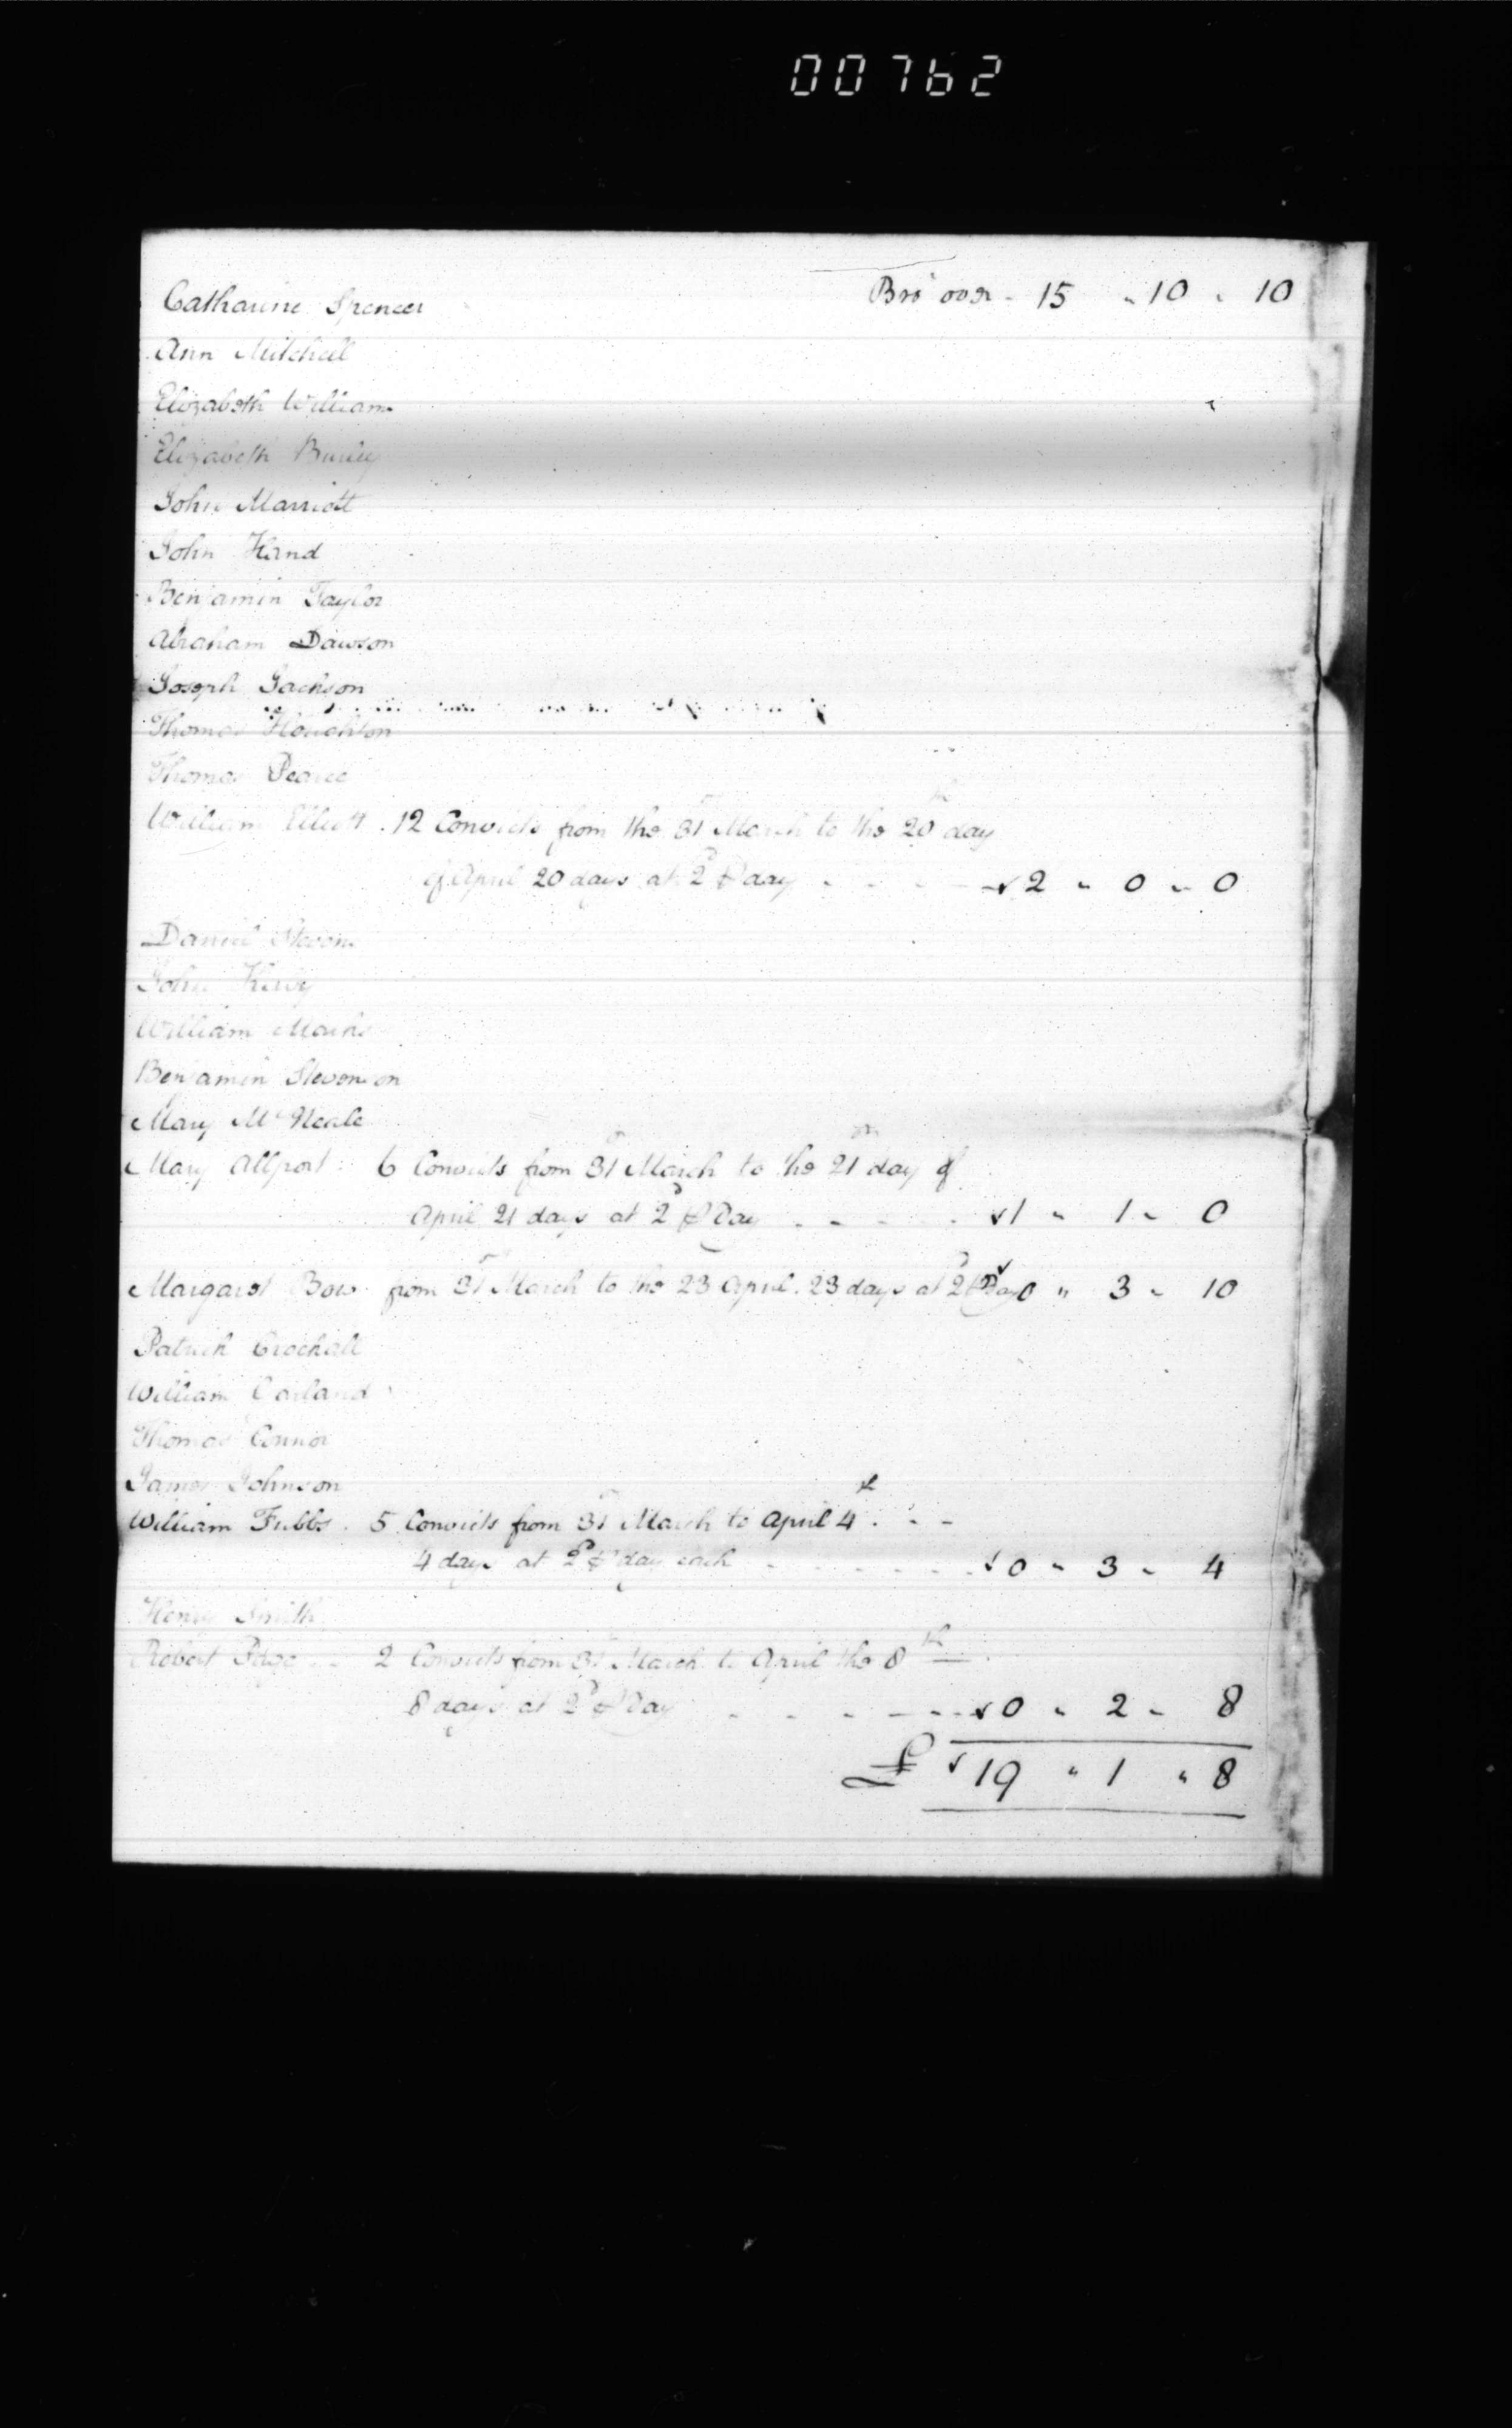 00762
Bro over - 15 " 10 " 10
Catharine Spencer
Ann Mitchell
Elizabeth Williams
Elizabeth Burley
John Marriott
John Hand
Benjamin Taylor
Abraham Dawson
Joseph Jackson
Thomas Houghton
Thomas Pearce
William Elliott . 12 Convicts from the 31st March to the 20th day
of April 20 days at 2d ⅌ day - - - - ✓ 2 " 0 " 0
Daniel Stevens
John
William Marks
Benjamin Stevenson
Mary McNeale
Mary Allport 6 Convicts from 31st March to the 21st day of
April 21 days at 2d ⅌ Day - - - - ✓ 1 " 1 " 0
Margaret Bow from 31st March to the 23 April. 23 days at 2d ⅌ Day ✓ 0 " 3 " 10
Patrick Crockall
William Carland
Thomas Connor
James Johnson
William Fubbs . 5 Convicts from 31st March to April 4th . - -
4 days at 2d ⅌ day each - - - - ✓ 0 " 3 " 4
Henry Smith
Robert Page - - 2 Convicts from 31st March to April the 8th
8 days at 2d ⅌ Day - - - - - ✓ 0 " 2 " 8
£ ✓ 19 " 1 " 8